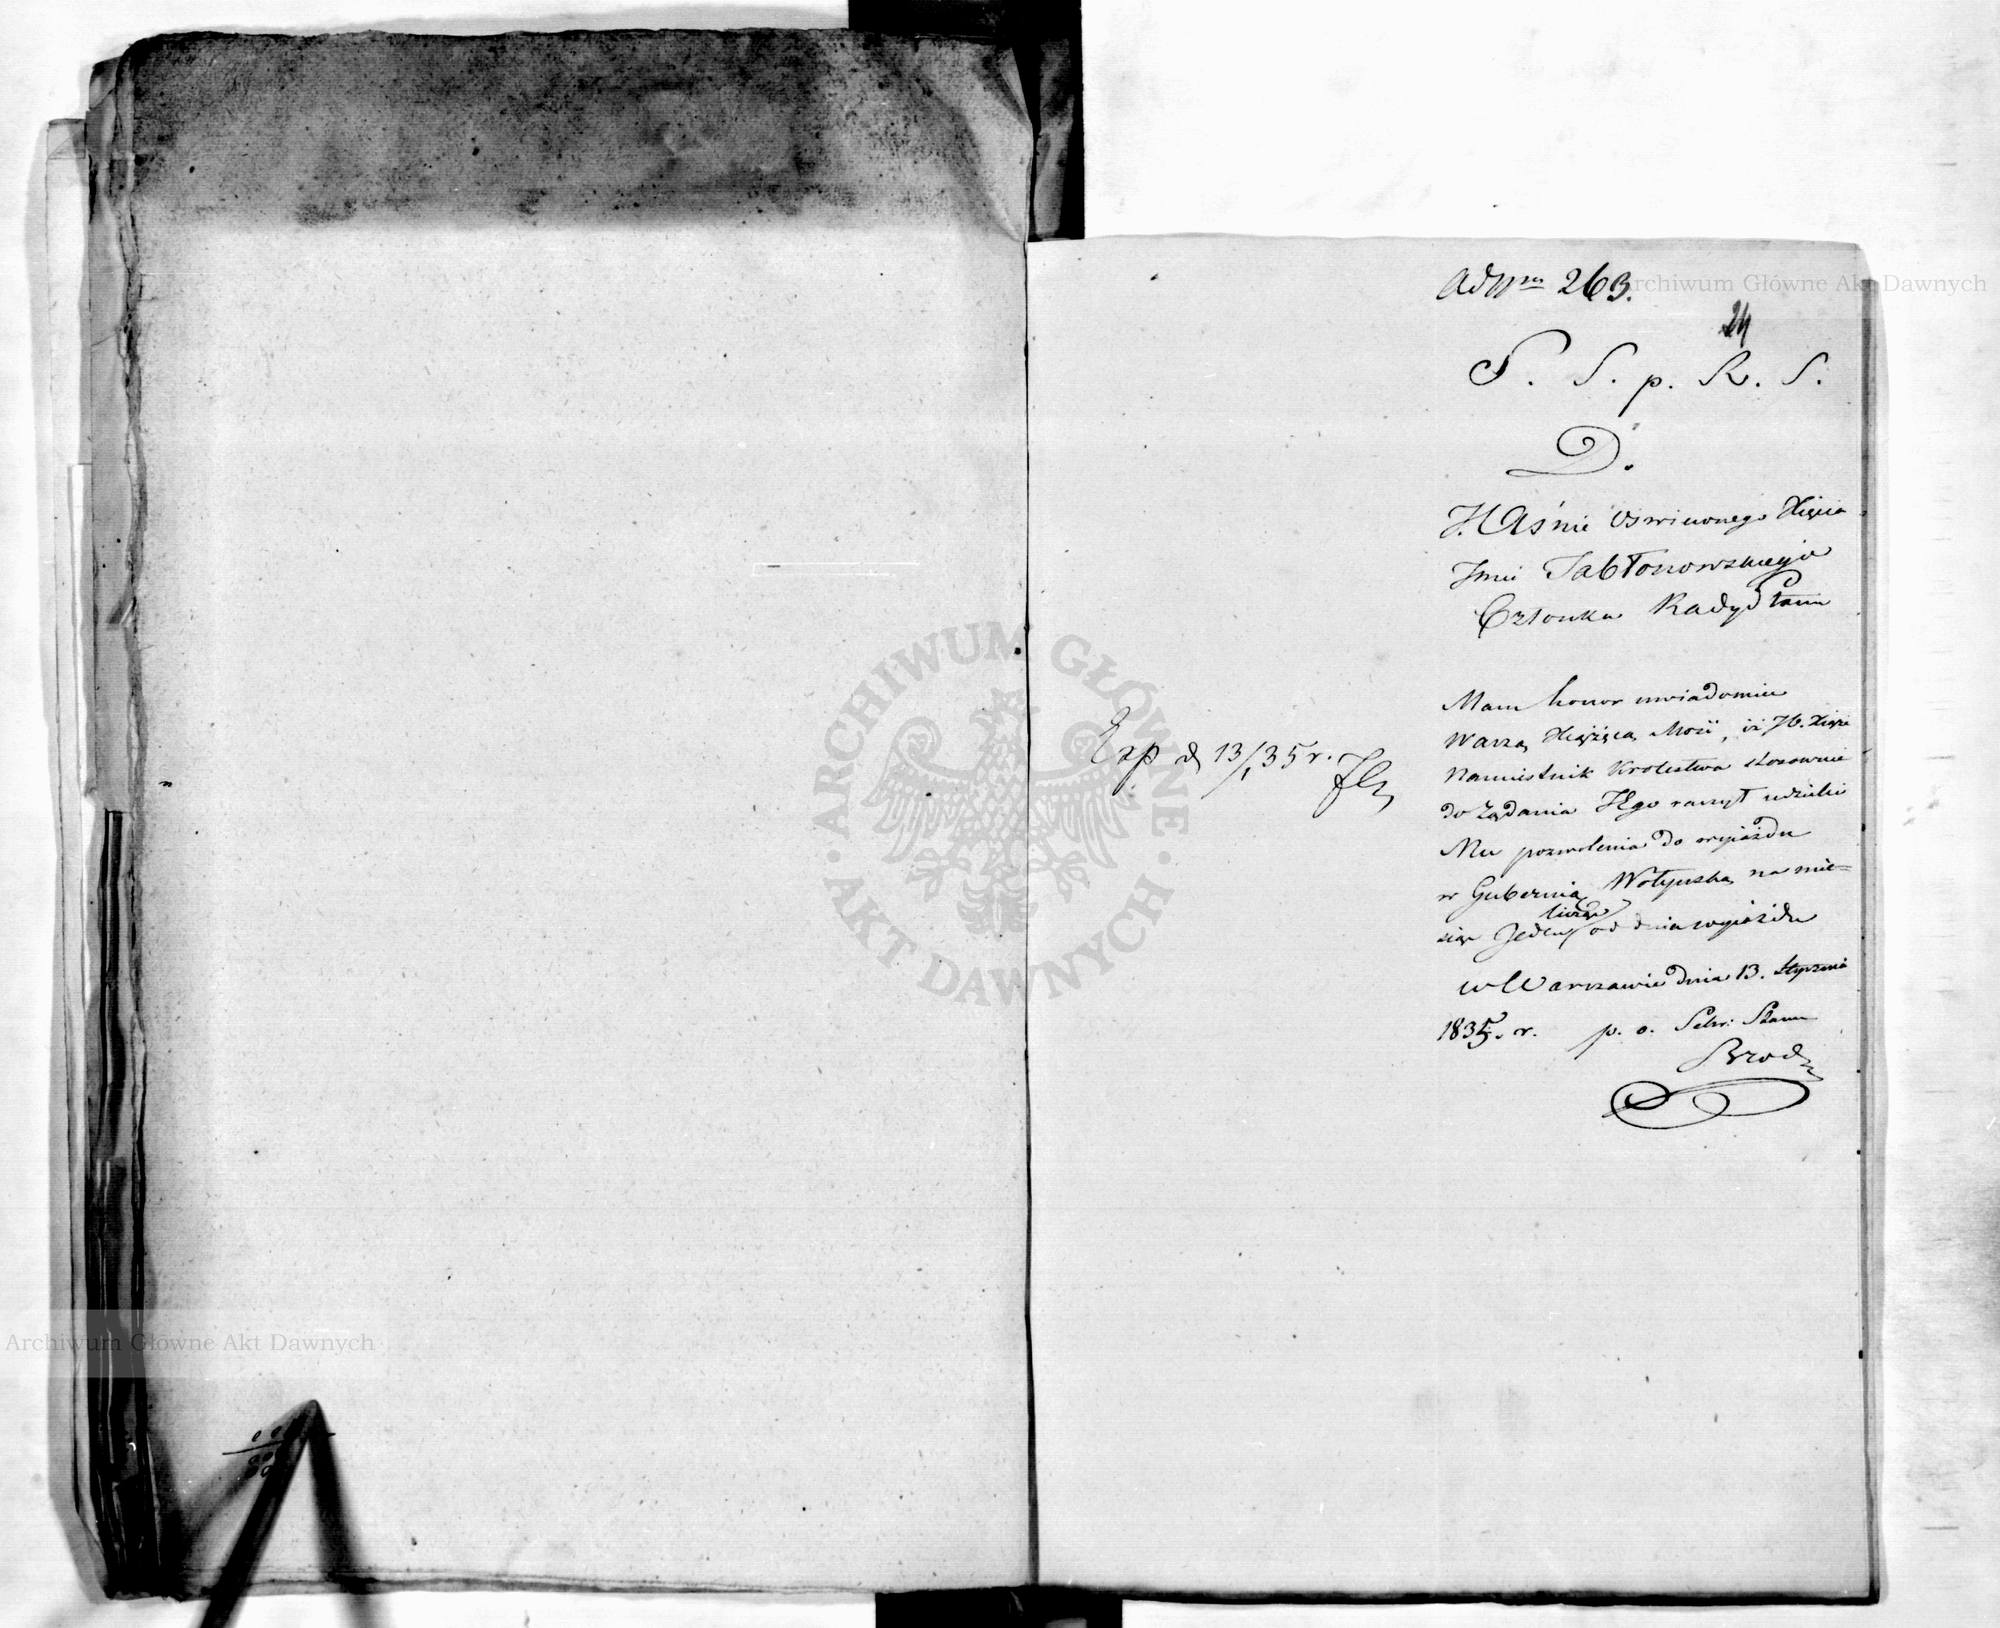 Ad Nrm 263.
24
S. S. p. R. S.
D.
JWaśnie Oswieconego Xięcia
Jmci Jabłonowskiego
Członka Rady Stanu
Mam honor uwiadomic
Waszą Xiążęcą Mość, iż JO. Xiąże
Namiestnik Krolestwa stosownie
do żądania JEgo raczył udzielić
Mu pozwolenia do wyjazdu
w Gubernią Wołyuską na mie=
siąc Jeden licząc od dnia wyjazdu
w Warszawie dnia 13. Stycznia
1835. r. p. o. Sekr: Stanu
Brod
Exp d 13/1 35 r.
ARCHIWUM GŁÓWNE
AKT DAWNYCH
Archiwum Główne Akt Dawnych
Archiwum Główne Akt Dawnych